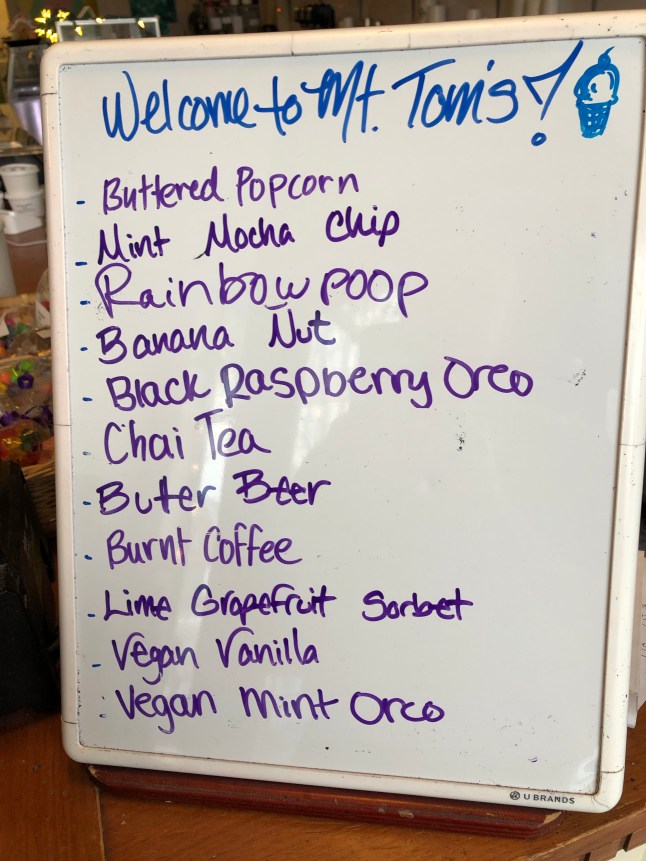 Welcome to Mt. Tom's!
- Buttered Popcorn
- Mint Mocha Chip
- Rainbow poop
- Banana Nut
- Black Raspberry Oreo
- Chai Tea
- Buter Beer
- Burnt Coffee
- Lime Grapefruit Sorbet
- Vegan Vanilla
- Vegan Mint Oreo
U BRANDS